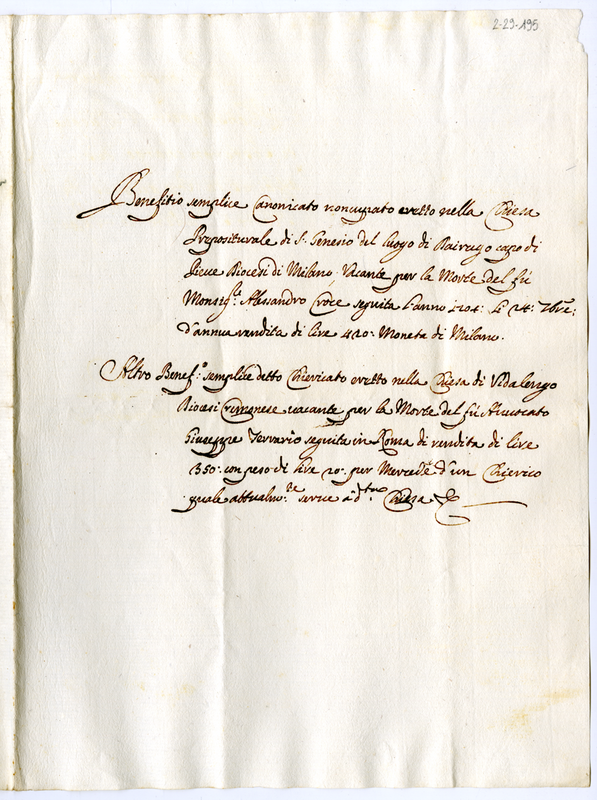 2-29-195
Benefitio semplice Canonicato noncupato eretto nella Chiesa
Prepositurale di S. Genesio del luogo di Dairago capo di
Pieve Diocesi di Milano. Vacante per la Morte del fù
Monsig.r Alessandro Croce seguita l'anno 1704: li 24: 7bre:
d'annua rendita di lire 420: Moneta di Milano.
Altro Benef.o semplice detto Chiericato eretto nella Chiesa di Vidalengo
Diocesi Cremonese vacante per la Morte del fù Avvocato
Giuseppe Ferrario seguita in Roma di rendita di lire
350: con peso di lire 20: per Mercede d'un Chierico
quale attualm.te serve a d.tta Chiesa